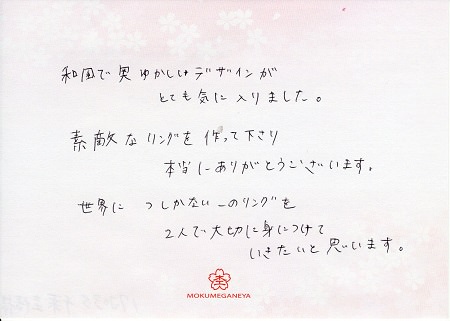 和風で奥ゆかしいデザインが
とても気に入りました。
素敵なリングを作って下さり
本当にありがとうございます。
世界に 1つしかない このリングを
2人で大切に身につけて
いきたいと思います。
MOKUMEGANEYA